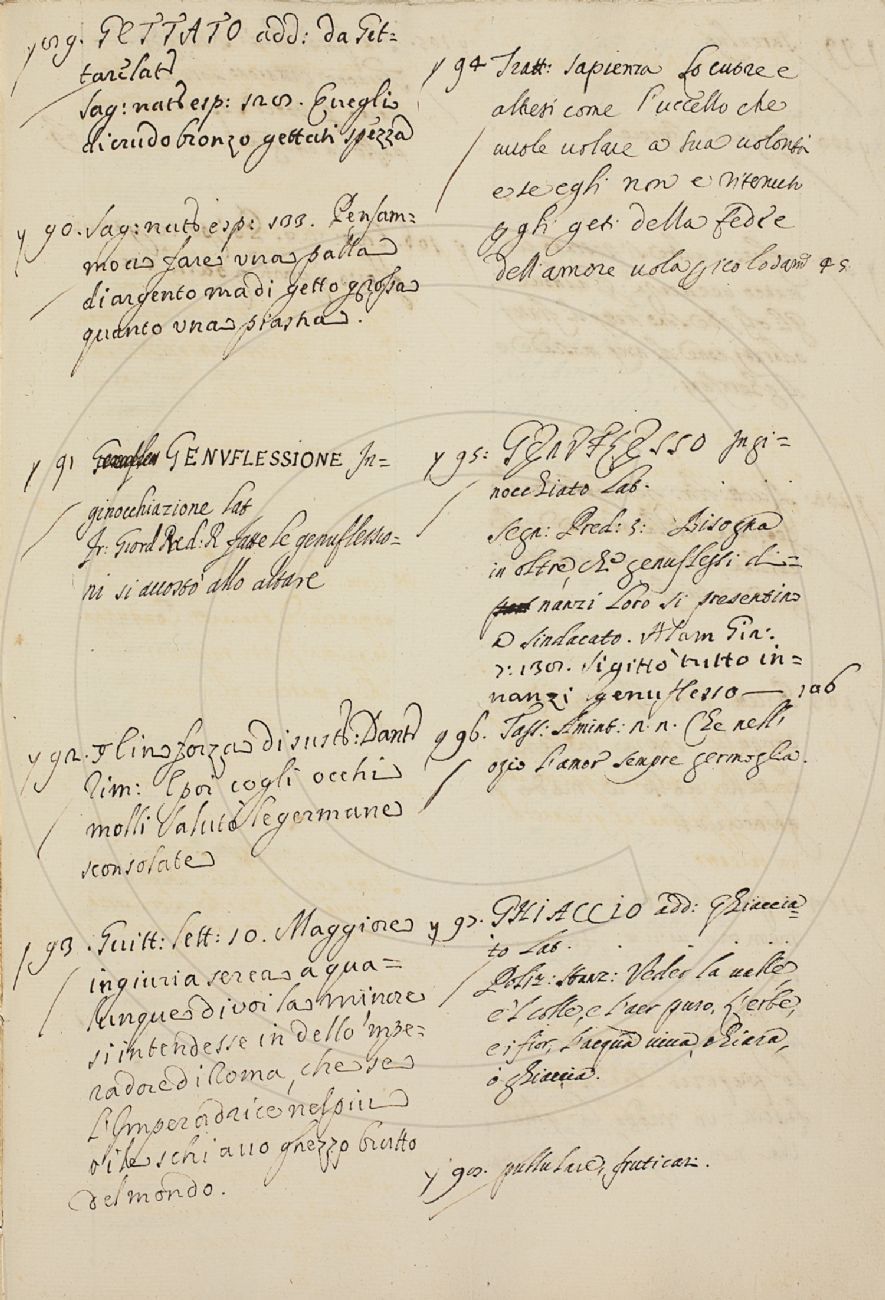 y 89. GETTATO add: da Get=
tare Lat
Sag: nat esp: 128. E quegli
di crudo bronzo gettati spezza
y 90. Sag: nat esp: 133. Pensam=
mo a fare una palla
di argento ma di getto grossa
quanto una
y 91 GENVFLESSIONE In=
ginocchiazione Lat
Fr: Giord Pred: R fatte le genuflessio=
ni si accostò allo altare
y 92. in forza di sust: Dant
Rim: E poi cogli occhi
molli Salutò le germane
sconsolate
y 93. Guitt: lett: 10. Maggiore
ingiuria serea a qua=
lunque di voi la minore
si intendesse in dello 'mpe=
radore di Roma, che se
l'Imperadrice nel piu
vile schiavo ghezzo brutto
del mondo.
y 94 Tratt: sapienza Lo cuore e
altresì come l'uccello che
vuole volare a sua volontà
e se egli non e ritenuto
p gli geti della fede e
dell'amore vola
y 95: GENVFLESSO Ingi=
nocchiato Lat.
Segn: Pred: 5: Bisogna
in oltre, che genuflessi di=
nanzi loro si presentino
a sindacato. Alam Gir:
2: 138. Si gittò tutto in=
nanzi genuflesso
y 96. Tass: Amint: n. n. Che nelli
ozio l'amor sempre germoglia.
y 97. GHIACCIO add: Ghiaccia=
to Lat.
Poliz: stanz: Vedeo la valle
e 'l colle, e l'aer puro, L'erbe,
e i fior, l'acqua viva, chiara,
o ghiaccia.
y 98. pullulare, fruticar.